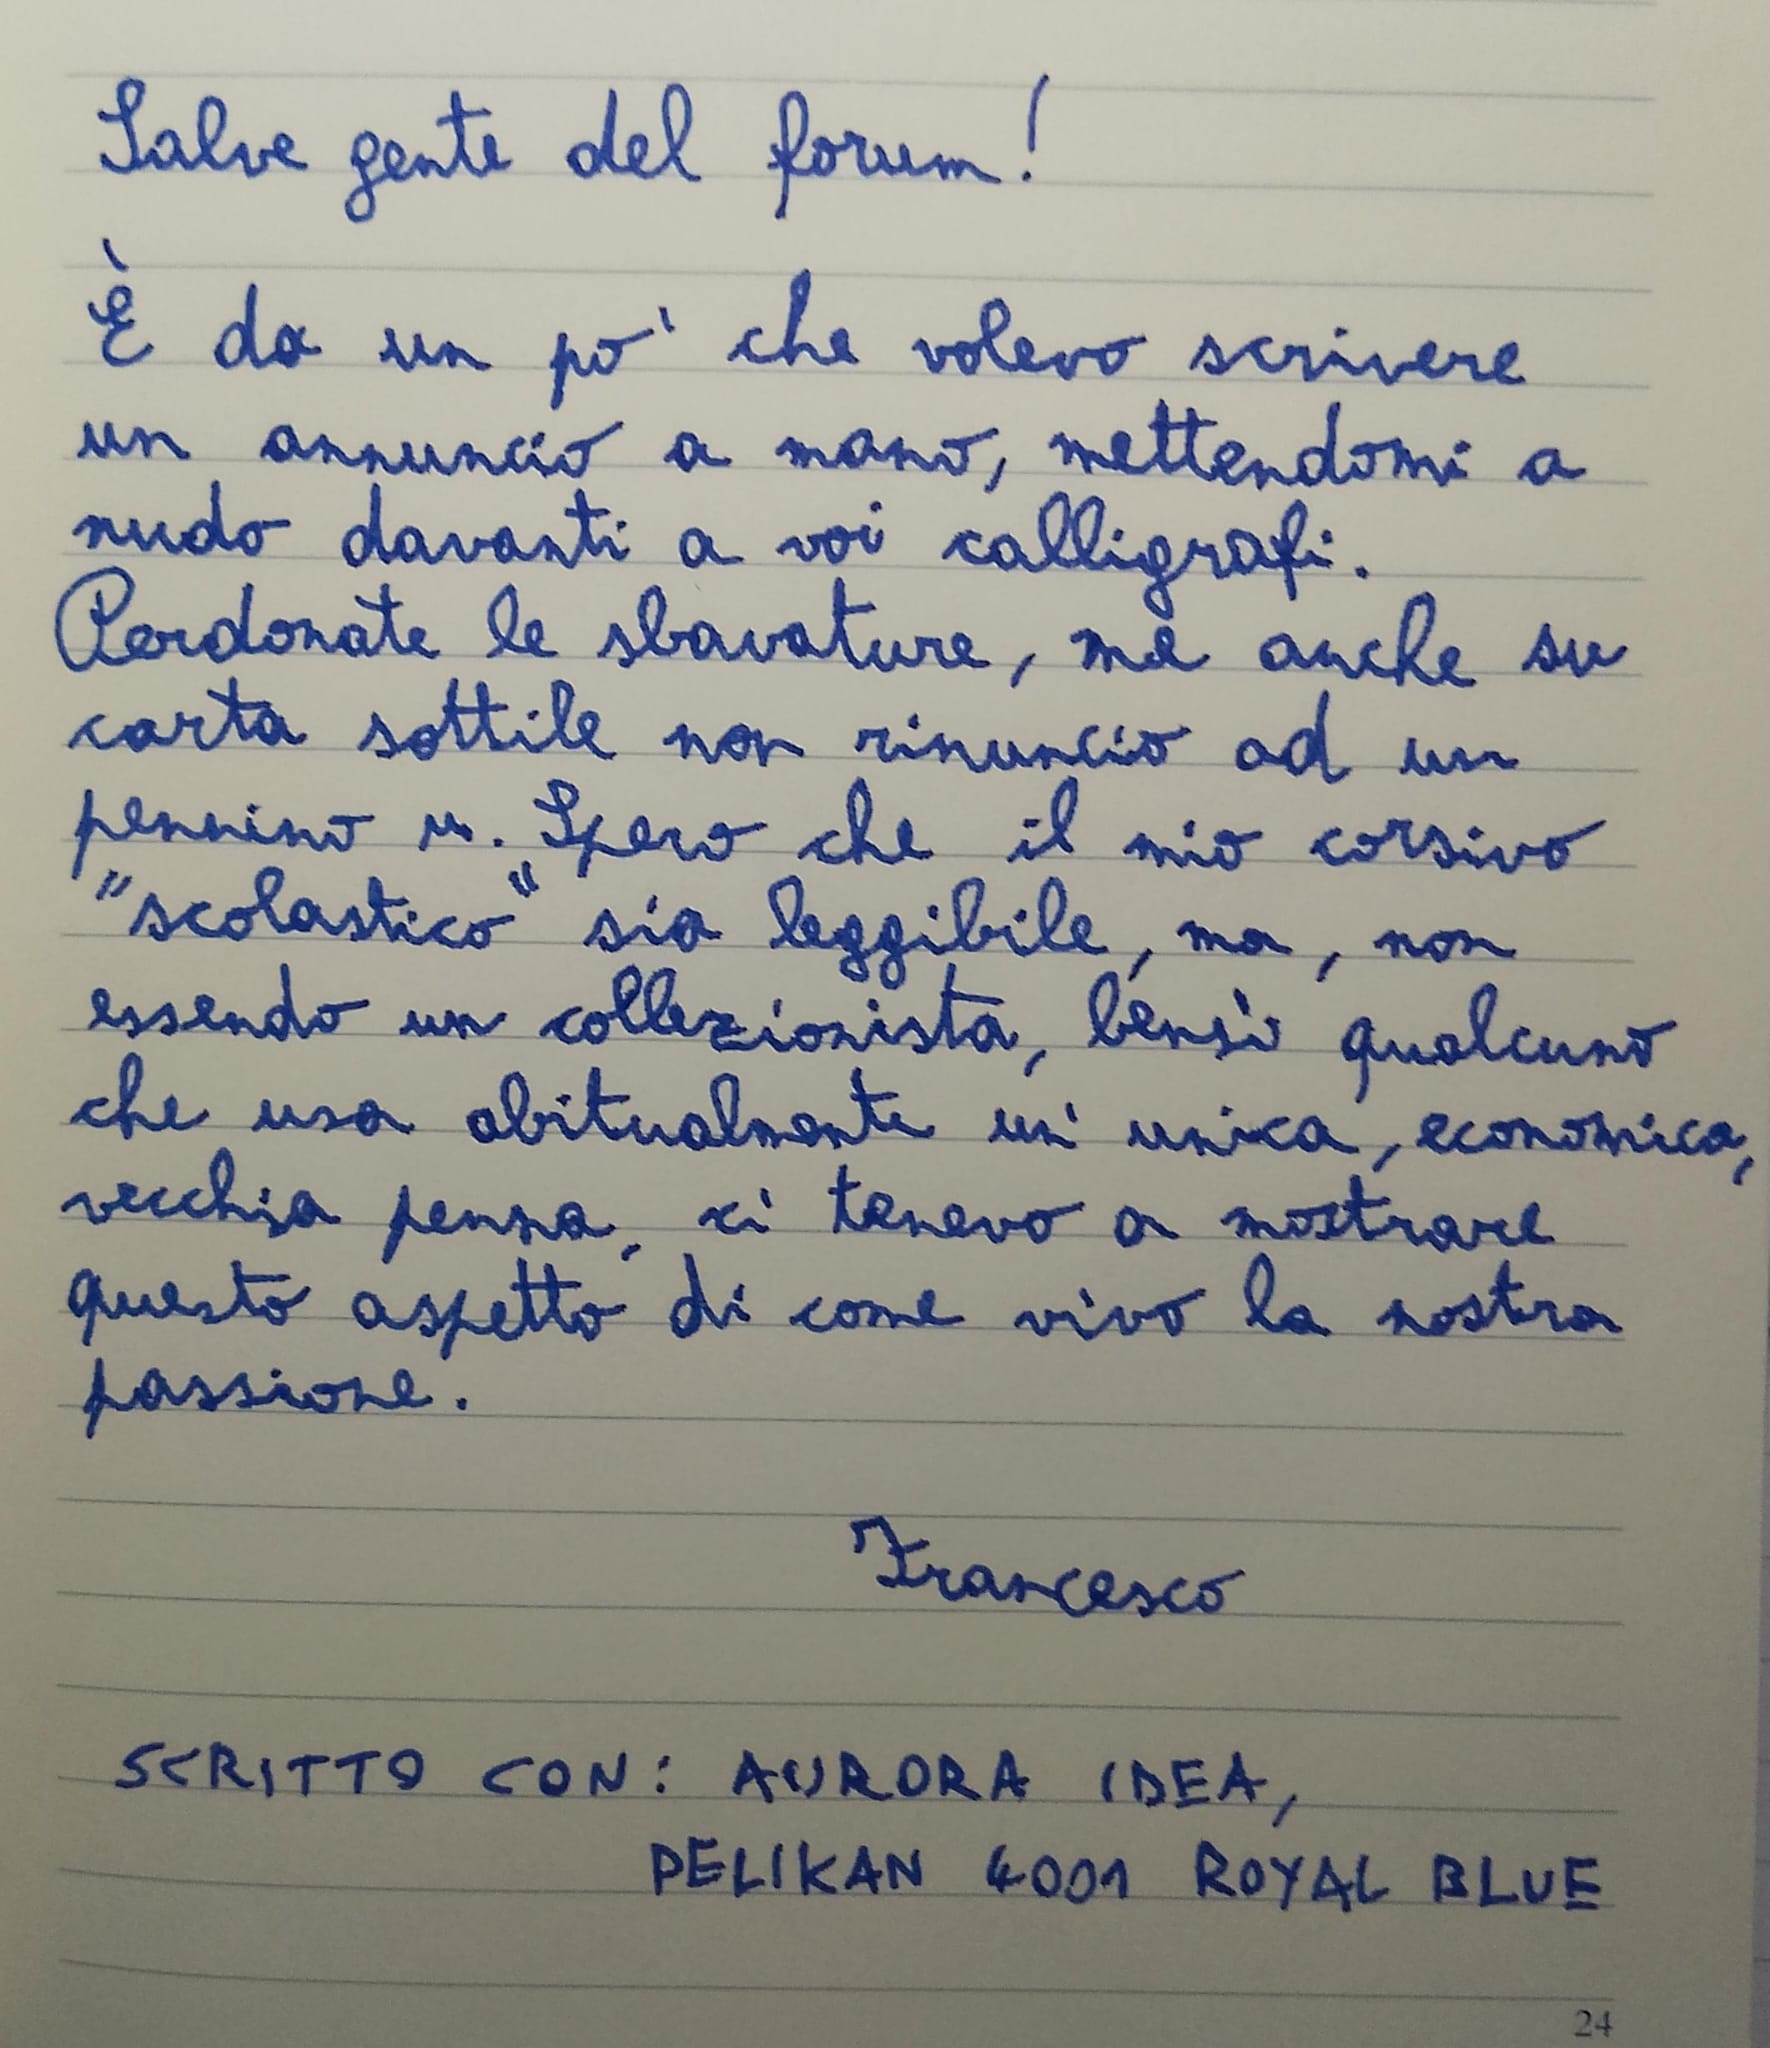 Salve gente del forum!
È da un po' che volevo scrivere
un annuncio a mano, mettendomi a
nudo davanti a voi calligrafi.
Perdonate le sbavature, ma anche su
carta sottile non rinuncio ad un
pennino m. Spero che il mio corsivo
"scolastico" sia leggibile, ma, non
essendo un collezionista, bensì qualcuno
che usa abitualmente un'unica, economica,
vecchia penna, ci tenevo a mostrare
questo aspetto di come vivo la nostra
passione.
Francesco
SCRITTO CON: AURORA IDEA,
PELIKAN 4001 ROYAL BLUE
24